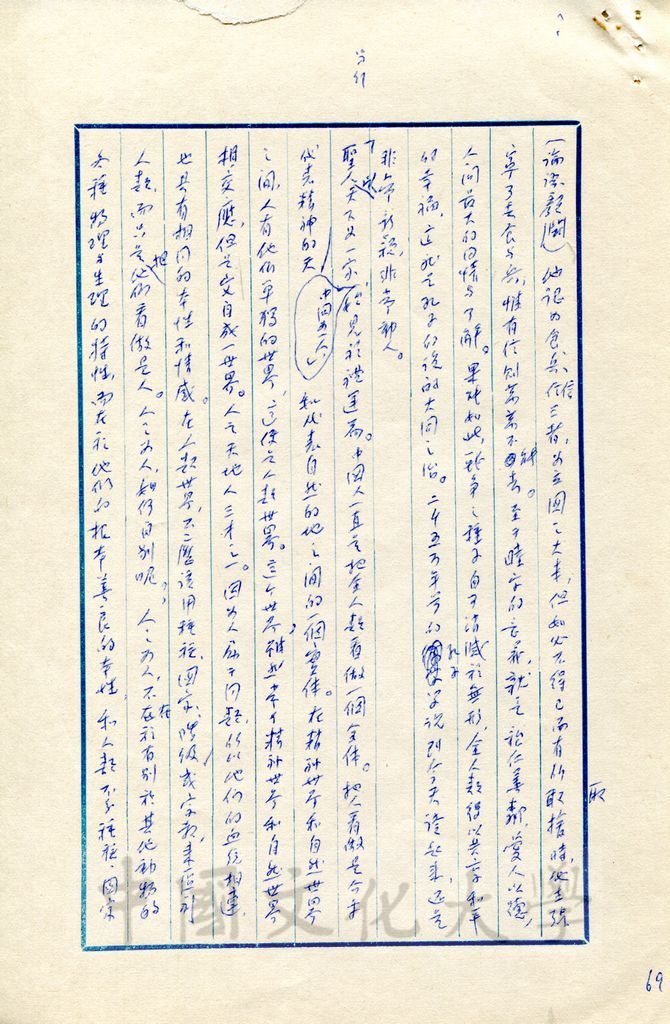 (論語顏淵)他認為食、兵、信三者,為立國之大本,但如必不得已而有所取捨時,他主張
寧可去食與兵,惟有信則萬萬不能去。至于睦字的意義,就是親仁善鄰,愛人以德,
人間最大的同情與了解。果能如此,戰爭之種子自可消滅於無形,全人類得以共享和平
的幸福,這就是孔子所說的大同之治。二千五百年前的孔子學說到今天證起來,還是
非常新穎,非常動人。
聖人以天下為一家,中國為一人,始見於禮運篇。中國人一直是把全人類看做一個全体。把人看做是介乎
代表精神的天,和代表自然的地之間的一個實体。在精神世界和自然世界
之間,人有他們單獨的世界,這便是人類世界。這個世界,雖然常介精神世界和自然世界
相交應,但是又自成一世界。人是天地人三才之一。因為人屬于同類,所以他們的血統相連,
也具有相同的本性和情感。在人類世界,不應該用種族、國家、階級或宗教,來區別
人類,而只是把他們看做是人。人之為人,如何自別呢?人之為人,不在於有別於其他動物的
各種物理與生理的特性,而在於他們的根本善良的本性,和人類不分種族、國家
69
中國文化大學